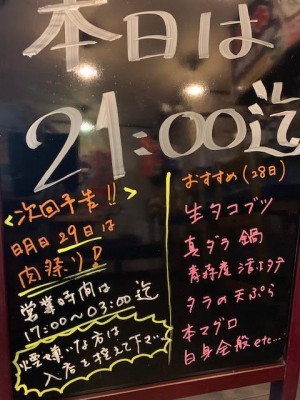 本日は
21:00迄
<次回予告!!>
明日29日は
肉祭り!
営業時間は
17:00〜03:00迄
煙嫌いな方は
入店を控えて下さい
おすすめ(28日)
生タコブツ
真ダラ鍋
青森産活ホタテ
タラの天ぷら
本マグロ
白身全般etc...